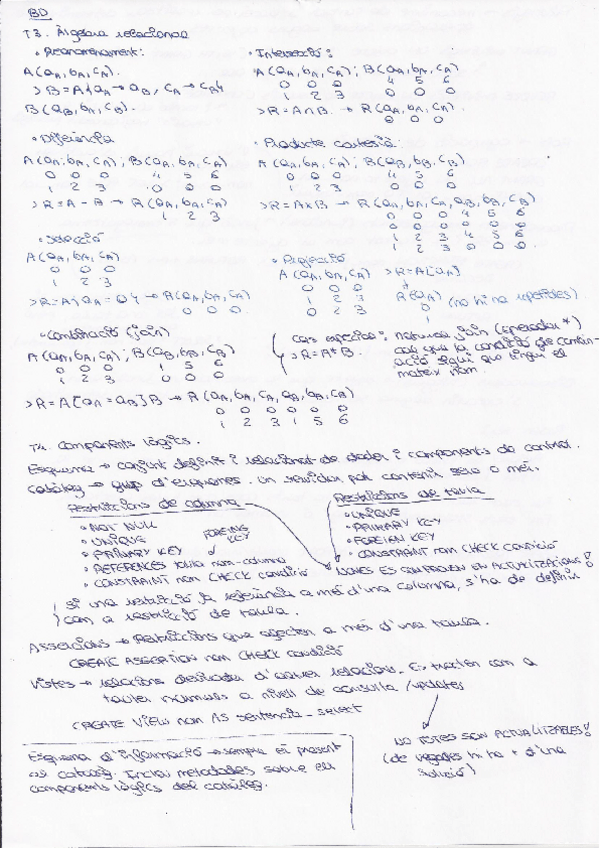 BD
T3. Àlgebra relacional
• Reanomenament:
A(aA, bA, cA).
> B = A{aA → aB, cA → cB}
B(aB, bA, cB).
• Intersecció:
A(aA, bA, cA) ; B(aA, bA, cA)
0 0 0 4 5 6
1 2 3 0 0 0
> R = A ∩ B → R(aA, bA, cA).
0 0 0
• Diferència
A(aA, bA, cA) ; B(aA, bA, cA)
0 0 0 4 5 6
1 2 3 0 0 0
> R = A - B → R(aA, bA, cA)
1 2 3
• Producte cartesià:
A(aA, bA, cA) ; B(aB, bB, cB)
0 0 0 4 5 6
1 2 3 0 0 0
> R = A x B → R(aA, bA, cA, aB, bB, cB)
0 0 0 4 5 6
0 0 0 0 0 0
1 2 3 4 5 6
1 2 3 0 0 0
• Selecció
A(aA, bA, cA)
0 0 0
1 2 3
> R = A{aA = 0} → R(aA, bA, cA)
0 0 0.
• Projecció
A(aA, bA, cA) > R = A[aA]
0 0 0
1 2 3 R(aA) (no hi ha repetides)
0 2 3 0
1
• Combinació (join)
A(aA, bA, cA) ; B(aB, bB, cB)
0 0 0 1 5 6
1 2 3 0 0 0
> R = A[aA = aB]B → R(aA, bA, cA, aB, bB, cB)
0 0 0 0 0 0
1 2 3 1 5 6
Cas especial: natural join (operador *)
> R = A * B. cal que la condició de combin-
ació sigui que tingui el
mateix nom.
T4. Components lògics.
Esquema → conjunt definit i relacionat de dades i components de control.
Catàleg → grup d'esquemes. Un servidor pot contenir zero o més.
Restriccions de columna
• NOT NULL
• UNIQUE
• PRIMARY KEY
FOREING KEY
• REFERENCES taula nom-columna
• CONSTRAINT nom CHECK condició
Restriccions de taula
• UNIQUE
• PRIMARY KEY
• FOREIGN KEY
• CONSTRAINT nom CHECK condició
NOMÉS ES COMPROVEN EN ACTUALITZACIONS!
Si una restricció fa referència a més d'una columna, s'ha de definir
com a restricció de taula.
Assercions → Restriccions que afecten a més d'una taula.
CREATE ASSERTION nom CHECK condició
Vistes → relacions derivades d'altres relacions. Es tracten com a
taules normals a nivell de consulta / updates
CREATE VIEW nom AS sentencia-select
NO TOTES SON ACTUALITZABLES!
(de vegades hi ha + d'una
solució)
Esquema d'informació → sempre és present
als catàlegs. Inclou metadades sobre els
components lògics del catàleg.